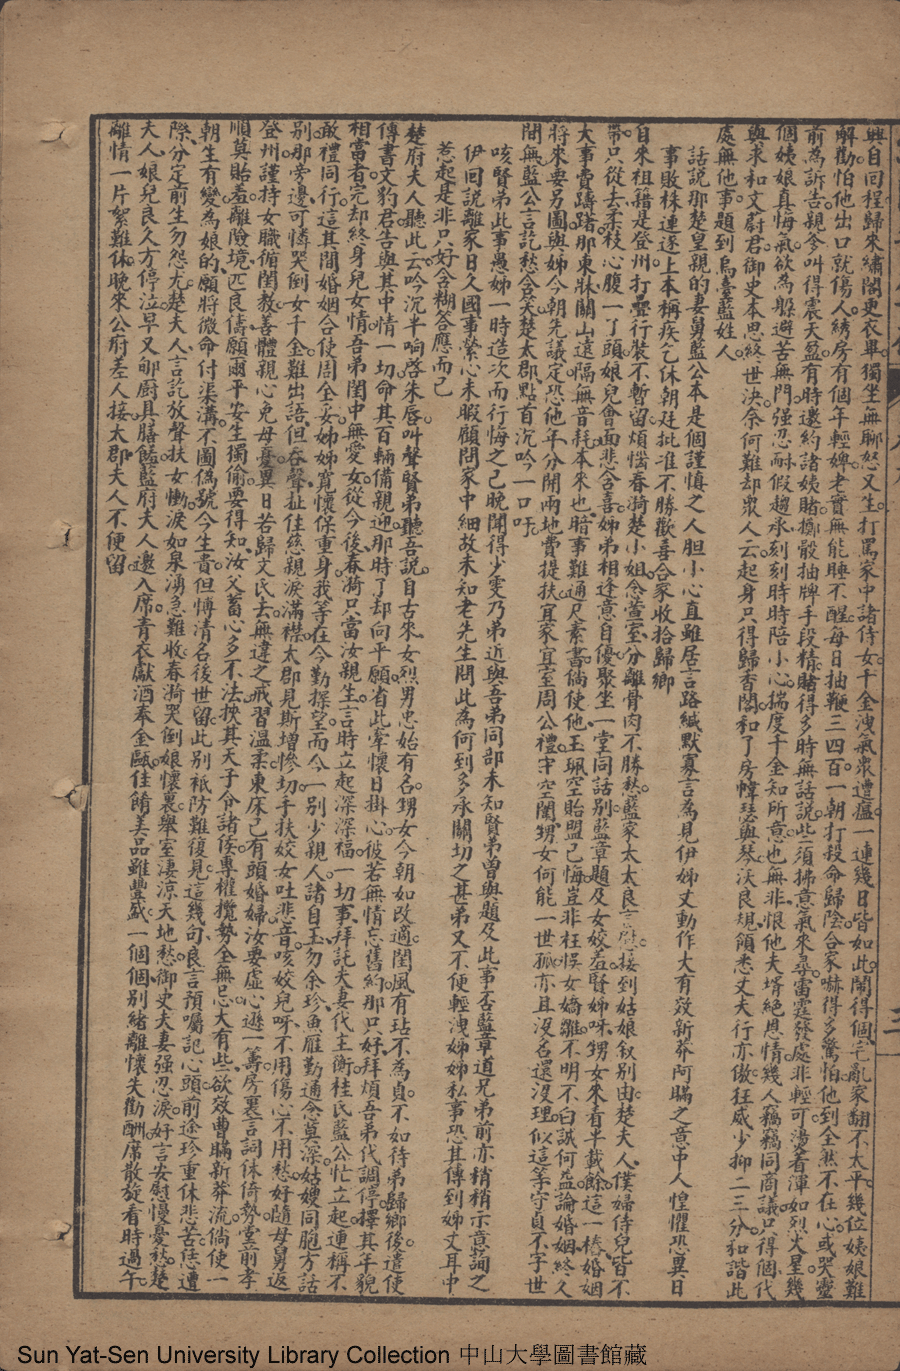 興。自回程歸來繡閣更衣畢。獨坐無聊怒又生。打罵家中諸侍女。千金洩氣衆遭瘟。一連幾日皆如此。鬧得個宅亂家翻不太平。幾位姨娘難
解勸。怕他出口就傷人。綉房有個年輕婢。老實無能睡不醒。每日抽鞭三四百。一朝打殺命歸陰。合家嚇得多驚怕。他到全然不在心。或哭靈
前為訴苦。親爹叫得震天盈。有時邀約諸姨賭。擲骰抽牌手段精。賭得多時無話說。些須拂意氣來尋。雷霆發處非輕可。湯着渾如烈火星。幾
個姨娘真悔氣。欲為躲避苦無門。强忍耐。假趨承。刻刻時時陪小心。揣度千金知所意。也無非恨他夫壻絕恩情。幾人竊竊同商議。只得個代
與求和文蔚君。御史本思終世決。奈何難却衆人云。起身只得歸香閣。和了房幃瑟與琴。沃良規領悉丈夫行。亦傲狂威少抑二三分。和諧此
處無他事。題到烏臺藍姓人。
話說那楚皇親的妻舅藍公本是個謹慎之人胆小心直雖居言路緘默寡言為見伊姊丈動作大有效新莽阿瞞之意中人惶懼恐異日
事敗株連遂上本稱疾乞休朝廷批准不勝歡喜合家收拾歸鄉
自來祖籍是登州。打疊行裝不暫留。煩惱春漪楚小姐。念萱室。分離骨肉不勝愁。藍家太太良言慰。接到姑娘叙別由。楚夫人僕婦侍兒皆不
帶。只從去柔枝心腹一丫頭。娘兒會面悲含喜。姊弟相逢意自優。聚坐一堂同話別。藍章題及女姣羞。賢姊呀。甥女來看半載餘。這一樁婚姻
大事費躊躇。那東牀關山遠隔無音耗。本來也暗事難通尺素書。倘使他玉珮空貽盟已悔。豈非枉悞女嬌雛。不明不白誠何益。論婚姻終久
將來要另圖。與姊今朝先議定。恐他年分開兩地費提扶。宜家宜室周公禮。守空閨甥女何能一世孤。亦且沒名還沒理。似這等守貞不字世
間無。藍公言訖愁含笑。楚太郡點首沉吟一口吁。
咳賢弟此事愚姊一時造次而行悔之已晚聞得少雯乃弟近與吾弟同部未知賢弟曾與題及此事否藍章道兄弟前亦稍稍示意誦之
伊回說離家日久國事縈心未暇顧問家中細故未知老先生問此為何到多承關切之甚弟又不便輕洩姊姊私事恐其傳到姊丈耳中
惹起是非只好含糊答應而已
楚府夫人聽此云。吟沉半响啓朱唇。叫聲賢弟聽吾說。自古來女烈男忠始有名。甥女今朝如改適。閨風有玷不為貞。不如待弟歸鄉後。遣使
傳書文豹君。舌與其中情一切。命其百輛備親迎。那時了却向平願。省此牽懷日掛心。彼若無情忘舊約。那只好拜煩吾弟代調停。擇其年貌
相當者。完却終身兒女情。吾弟閨中無愛女。從今後春漪只當汝親生。言時立起深深福。一切事拜託夫妻代主衡。桂氏藍公忙立起。連稱不
敢禮同行。這其間婚姻合使周全妥。姊姊寬懷保重身。我等在今勤探望。而今一別少親人。諸自玉。勿余珍。魚雁勤通念莫深。姑嫂同胞方話
別。那旁邊可憐哭倒女千金。難出語。但吞聲。扯住慈親淚滿襟。太郡見斯增慘切。手扶姣女吐悲音。咳姣兒呀。不用傷心不用愁。好隨母舅返
登州。謹持女職循閨教。善體親心免母憂。異日若歸文氏去。無違之戒習溫柔。東床已有頭婚婦。汝要虛心遜一籌。房裏言詞休倚勢。堂前孝
順莫貽羞。離險境。匹良儔。願爾平安生獨偷。要得知汝父蓄心多不法。挾其天子令諸侯。專權攬勢全無忌。大有些欲效曹瞞新莽流。倘使一
朝生有變。為娘的願將微命付渠溝。不圖僞號今生貴。但博清名後世留。此別祇防難復見。這幾句良言預囑記心頭。前途珍重休悲苦。恁遭
際。分定前生勿怨尤。楚夫人言訖放聲扶女慟。淚如泉湧急難收。春漪哭倒娘懷裏。舉室凄涼天地愁。御史夫妻强忍淚。好言安慰慢憂愁。楚
夫人娘兒良久方停泣。早又𨚫厨具膳饈。藍府夫人邀入席。青衣獻酒奉金甌。佳餚美品雖豐盛。一個個別緒離懷失勸酬。席散旋看時過午。
離情一片絮難休。晚來公府差人接。太郡夫人不便留。